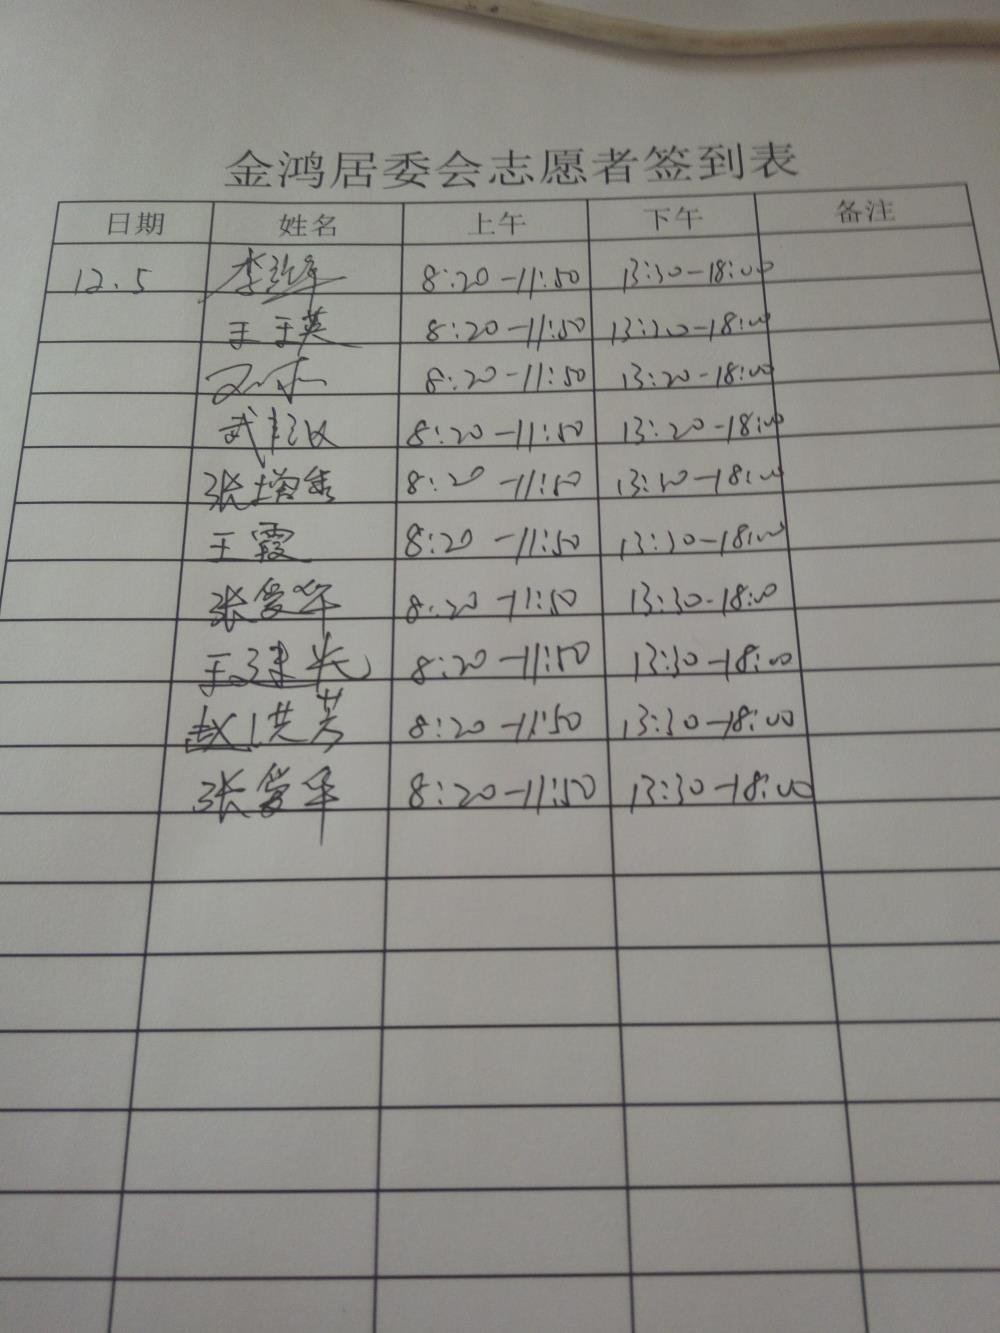 金鸿居委会志愿者签到表
日期 姓名 上午 下午 备注
12.5 李 8:20-11:50 13:30-18:00
王玉英 8:20-11:50 13:20-18:00
8:20-11:50 13:20-18:00
武 8:20-11:50 13:20-18:00
张增秀 8:20-11:50 13:20-18:00
王霞 8:20-11:50 13:30-18:00
张爱华 8:20-11:50 13:30-18:00
王建长 8:20-11:50 13:30-18:00
赵洪芳 8:20-11:50 13:30-18:00
张爱华 8:20-11:50 13:30-18:00